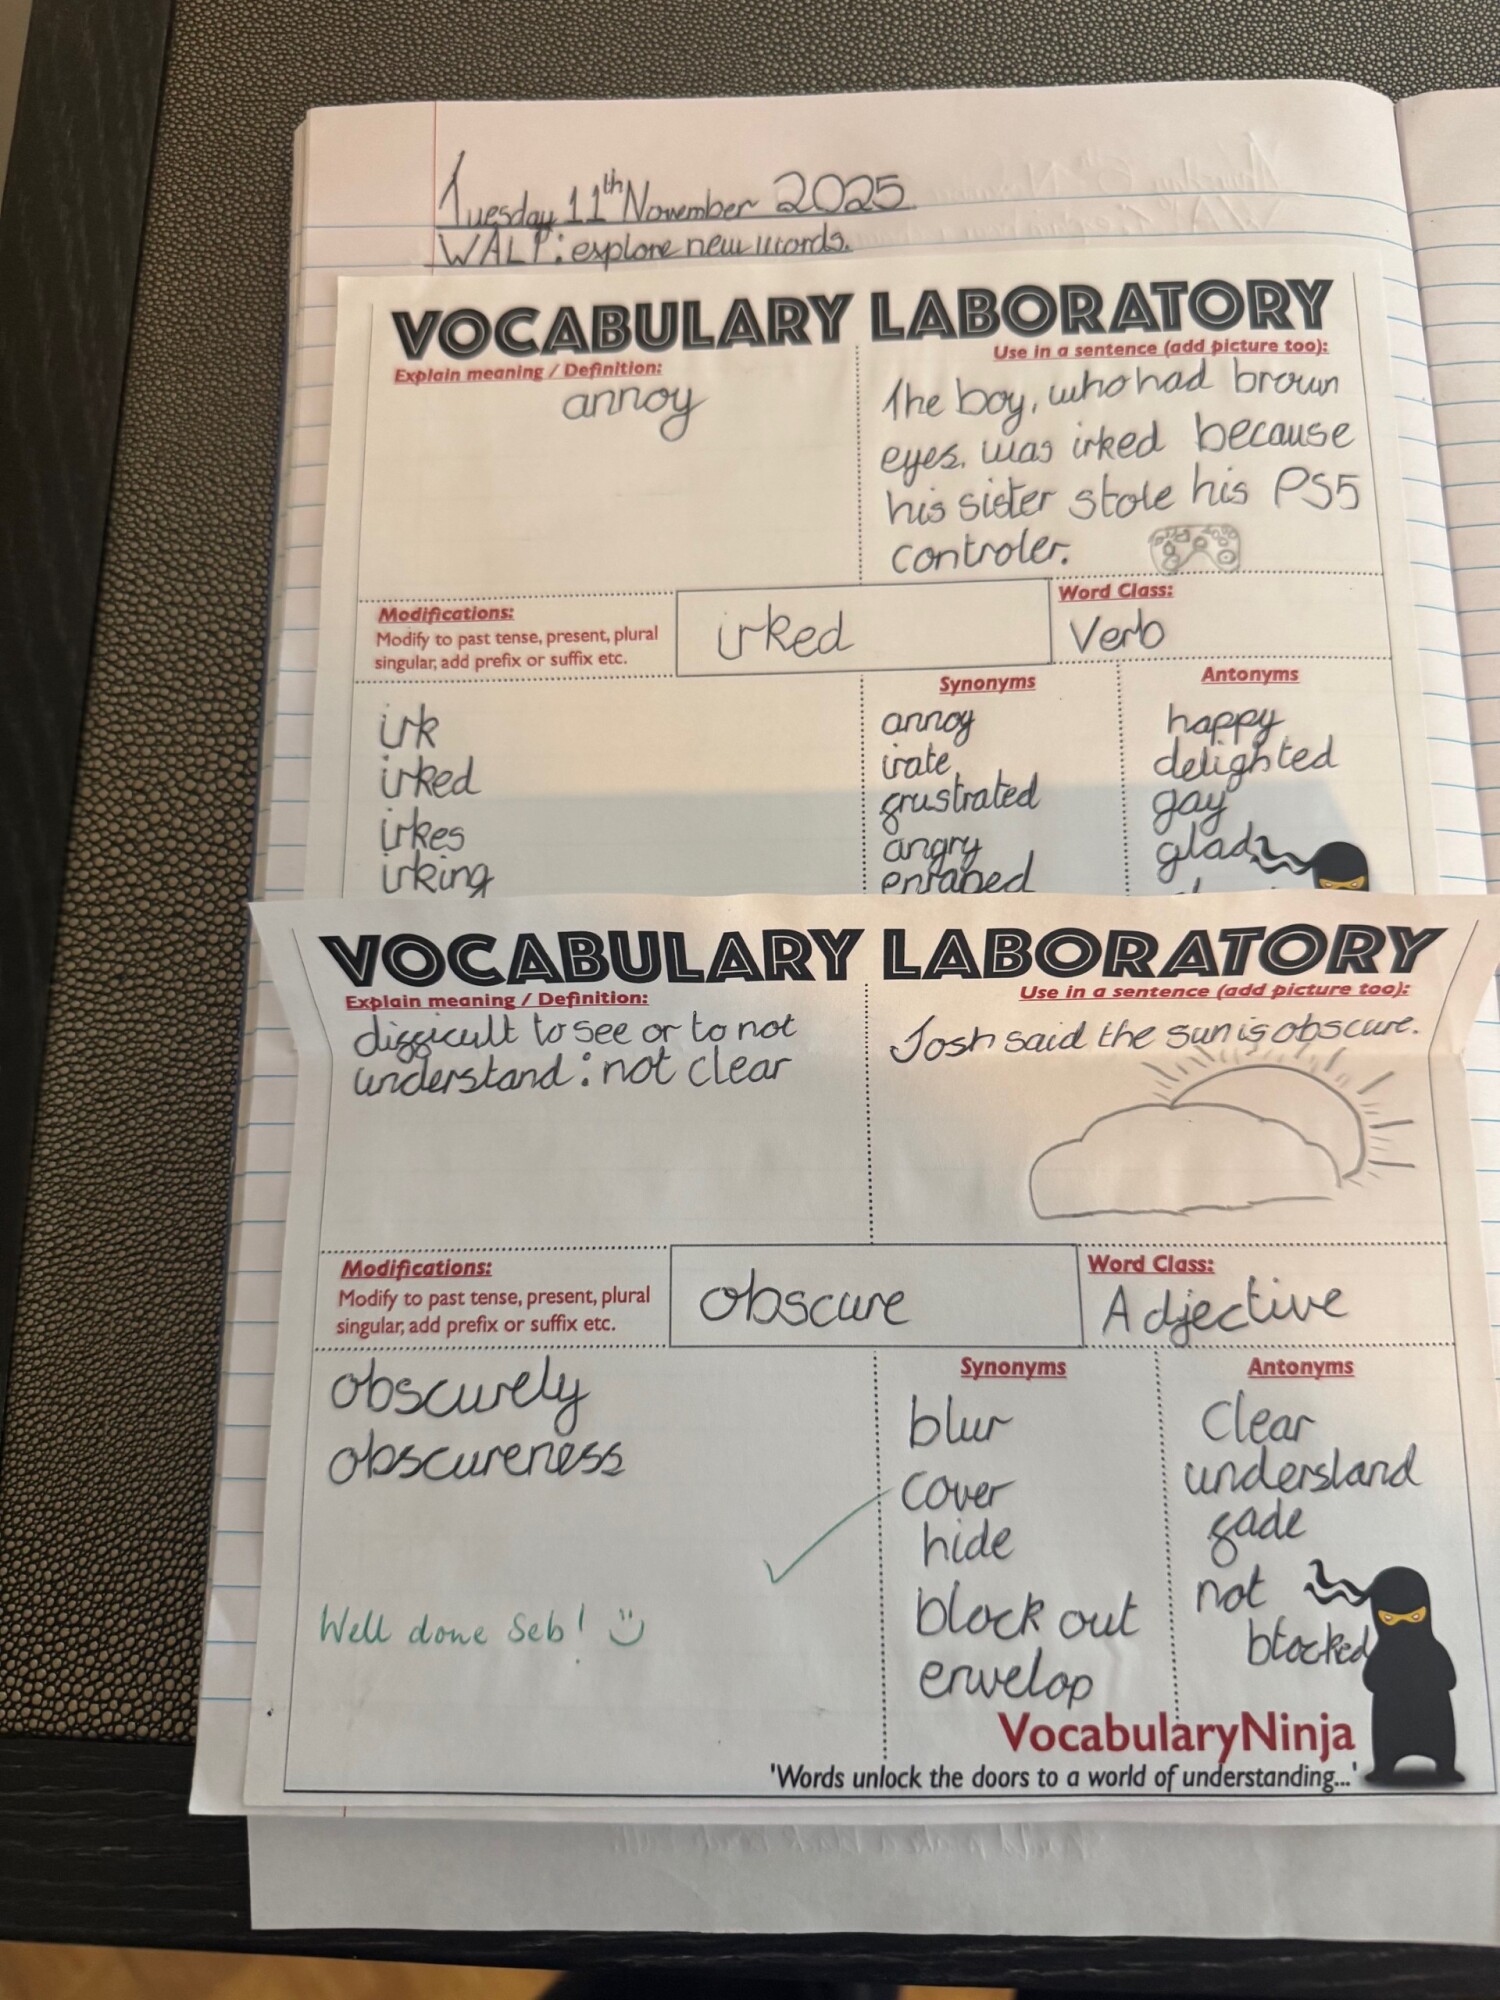 Tuesday 11th November 2025
WALT: explore new words.
VOCABULARY LABORATORY
Explain meaning / Definition:
annoy
Use in a sentence (add picture too):
The boy, who had brown
eyes, was irked because
his sister stole his PS5
controler.
Modifications:
Modify to past tense, present, plural
singular, add prefix or suffix etc.
irked
Word Class:
Verb
irk
irked
irkes
irking
Synonyms
annoy
irate
frustrated
angry
enraged
Antonyms
happy
delighted
gay
glad
VOCABULARY LABORATORY
Explain meaning / Definition:
difficult to see or to not
understand: not clear
Use in a sentence (add picture too):
Josh said the sun is obscure.
Modifications:
Modify to past tense, present, plural
singular, add prefix or suffix etc.
obscure
Word Class:
Adjective
obscurely
obscureness
Well done Seb!
Synonyms
blur
cover
hide
block out
envelop
Antonyms
Clear
understand
fade
not
blocked
VocabularyNinja
'Words unlock the doors to a world of understanding...'